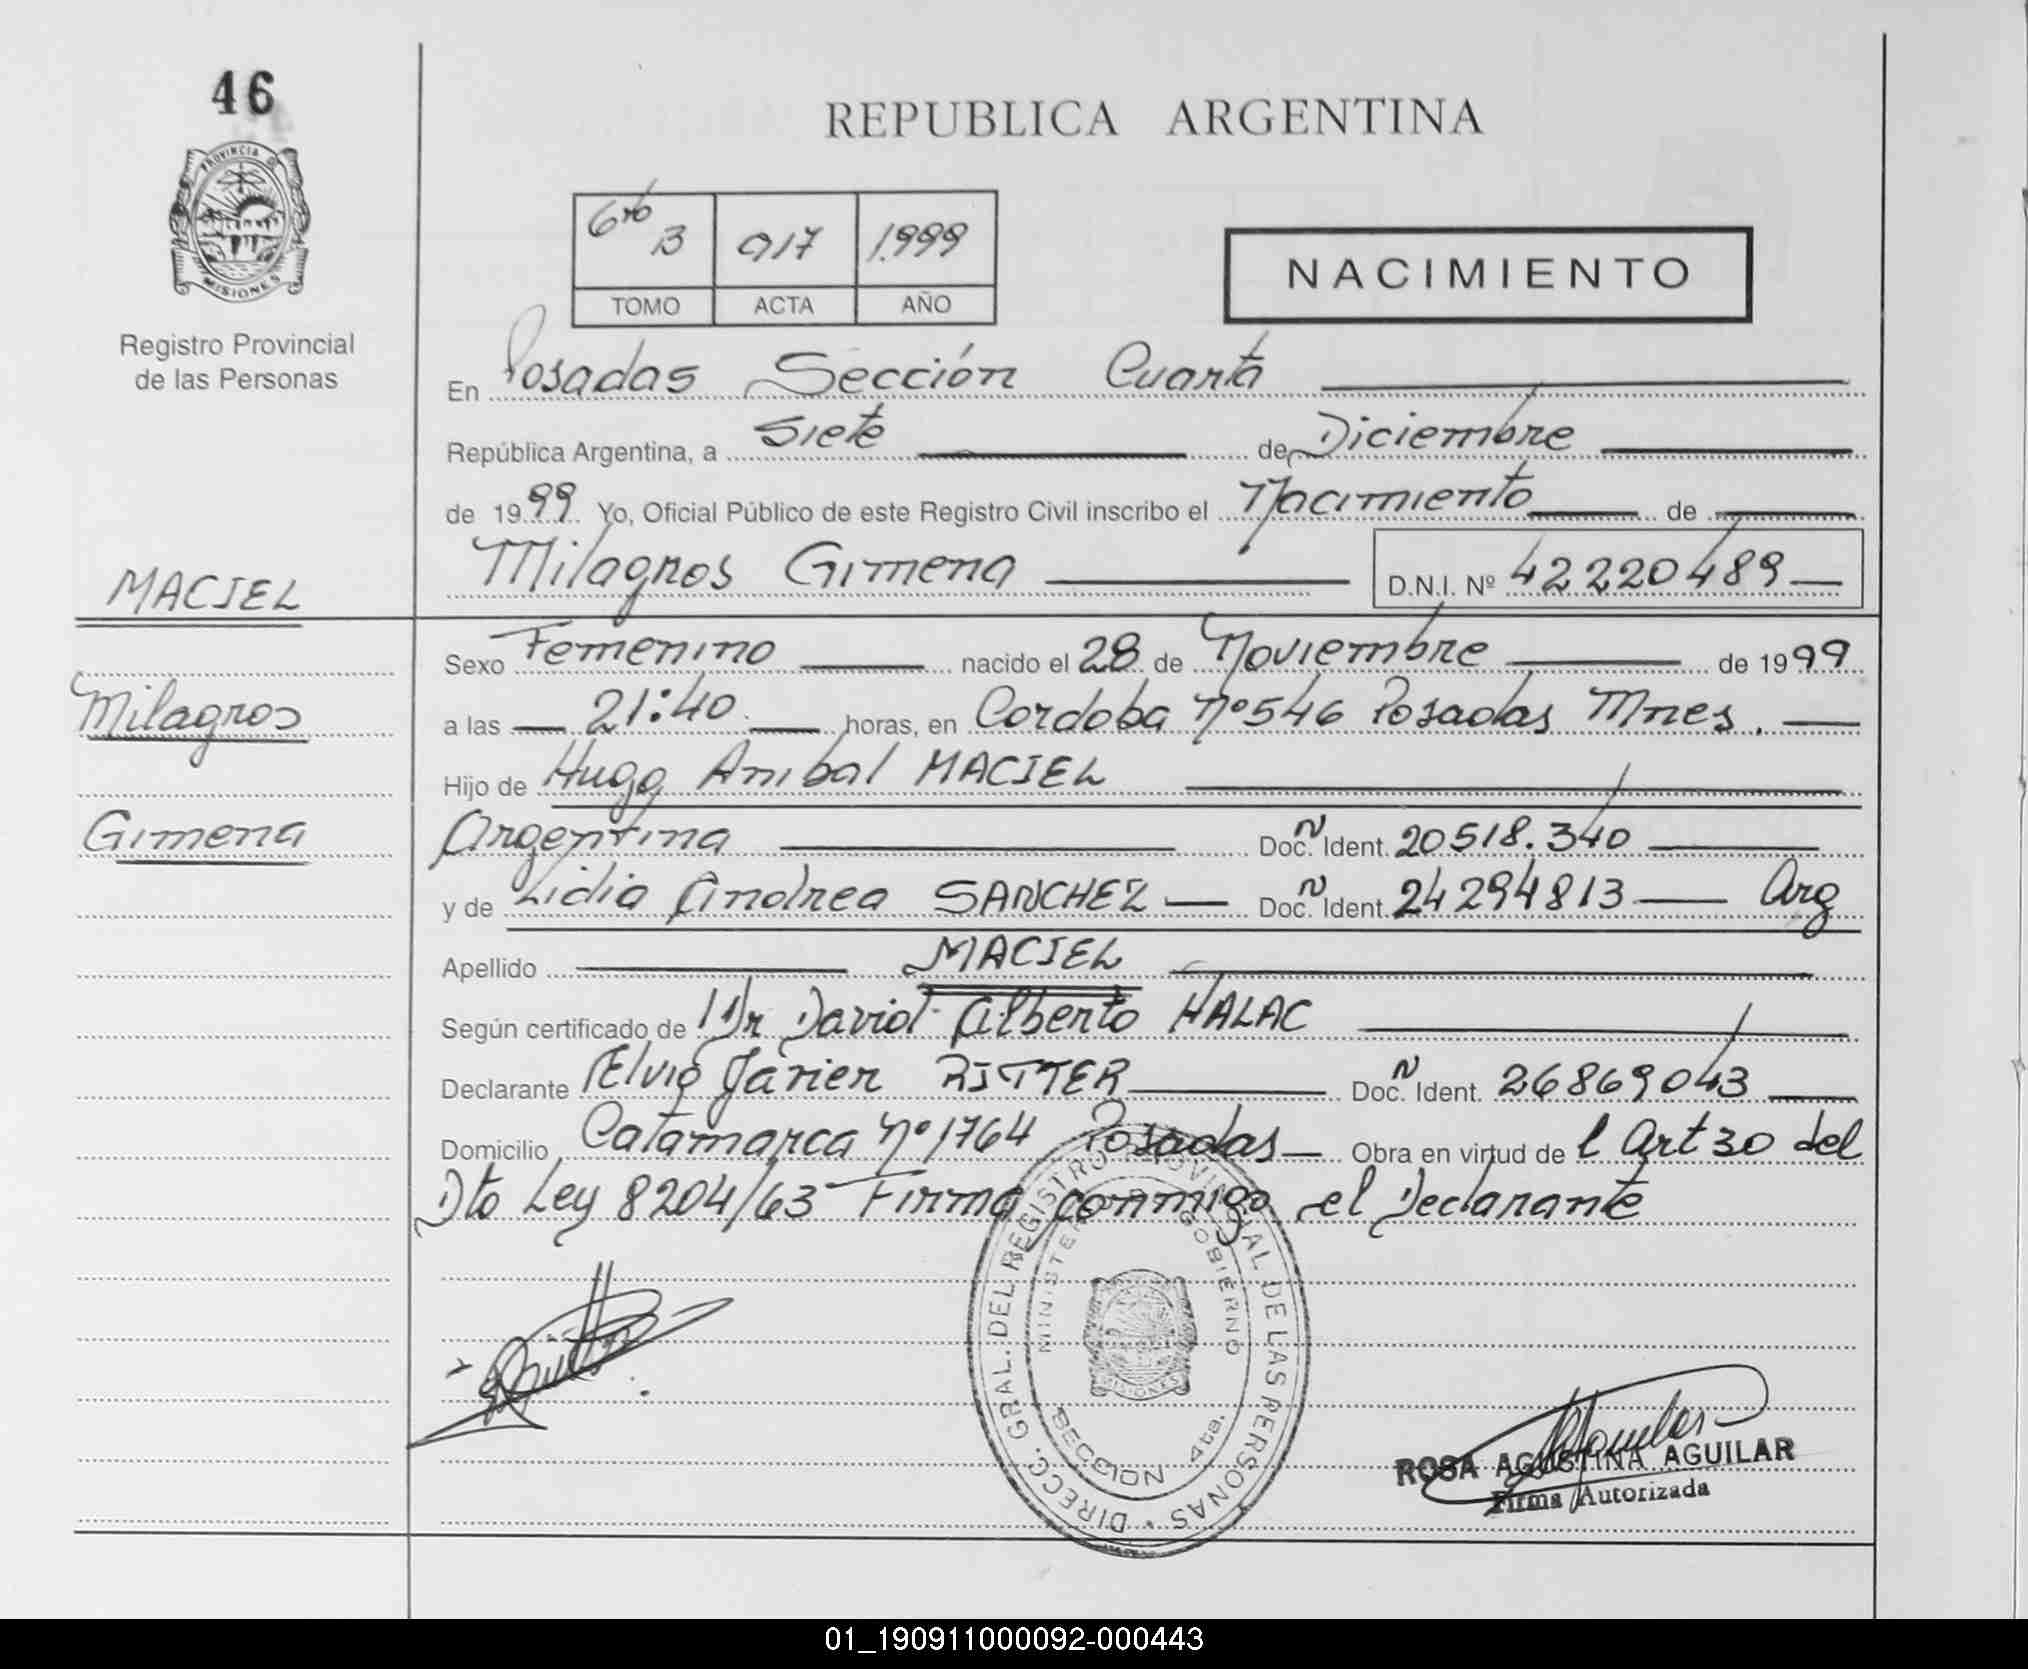 46
PROVINCIA DE
MISIONES
Registro Provincial
de las Personas
REPUBLICA ARGENTINA
6to B 917 1.999
TOMO ACTA AÑO
NACIMIENTO
En Posadas Sección Cuarta
República Argentina, a Siete de Diciembre
de 1999 Yo, Oficial Público de este Registro Civil inscribo el Nacimiento de
Milagros Gimena D.N.I. Nº 42220489
MACIEL
Milagros
Gimena
Sexo Femenino nacido el 28 de Noviembre de 1999
a las 21:40 horas, en Cordoba Nº 546 Posadas Mnes.
Hijo de Hugo Anibal MACIEL
Argentina Doc. Ident. 20518.340
y de Lidia Andrea SANCHEZ Doc. Ident. 24294813 Arg
Apellido MACIEL
Según certificado de Dr David Alberto HALAC
Declarante Elvio Javier RITTER Doc. Ident. 26869043
Domicilio Catamarca Nº 1764 Posadas Obra en virtud de l Art 30 del
Dto Ley 8204/63 Firma conmigo el Declarante
DIRECC. GRAL. DEL REGISTRO PROVINCIAL DE LAS PERSONAS
MINISTERIO DE GOBIERNO
MISIONES
SECCION 4ta.
ROSA AGUSTINA AGUILAR
Firma Autorizada
01_190911000092-000443